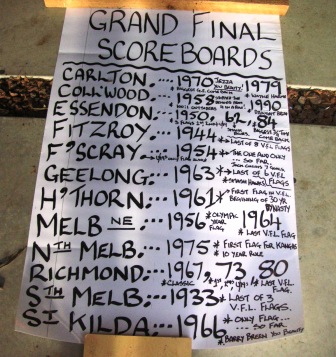 GRAND FINAL
SCOREBOARDS
CARLTON.... 1970 JEZZA YOU BEAUTY! 1979
COLL'WOOD... 1958 1990
ESSENDON... 1950, 62, 84
FITZROY... 1944 * LAST OF 8 V.F.L. FLAGS
F'SCRAY... 1954 * THE ONE AND ONLY
... SO FAR
GEELONG... 1963 * LAST OF 6 V.F.L
FLAGS
H'THORN.... 1961 * FIRST FLAG IN V.F.L
BEGINNING OF 30 YR
DYNASTY
MELB NE... 1956 * OLYMPIC YEAR FLAG 1964
* LAST V.F.L. FLAG
NTH MELB... 1975 * FIRST FLAG FOR KANGAS
* 10 YEAR RULE
RICHMOND... 1967, 73, 80
* CLASSIC * LAST V.F.L. FLAG.
STH MELB... 1933 * LAST OF 3
V.F.L. FLAGS.
ST KILDA... 1966 * ONLY FLAG...
... SO FAR
* BARRY BREEN YOU BEAUTY